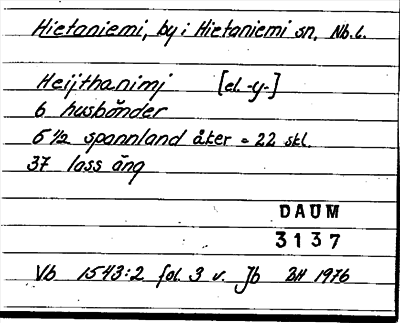 Hietaniemi, by i Hietaniemi sn, Nb. l.
Heijthanimj [el. -y-]
6 husbönder
6 1/2 spannland åker = 22 skl.
37 lass äng
DAUM
3137
Vb 1543:2 fol. 3 v. Jb BH 1976